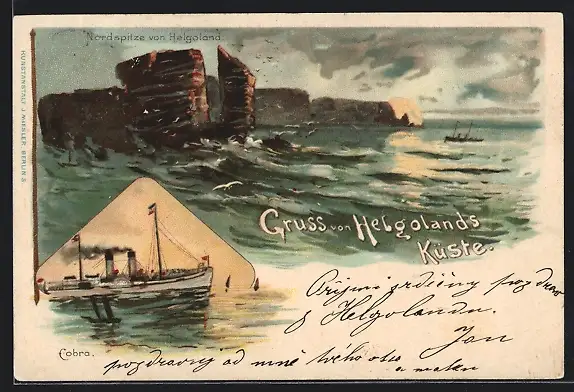 Nordspitze von Helgoland
KUNSTANSTALT J. MIESLER, BERLIN S.
Gruss von Helgolands
Küste.
Cobra.
Přijmi srdečný pozdrav
s Helgolandu.
Jan
pozdravuj od mně tvého otce
a matku